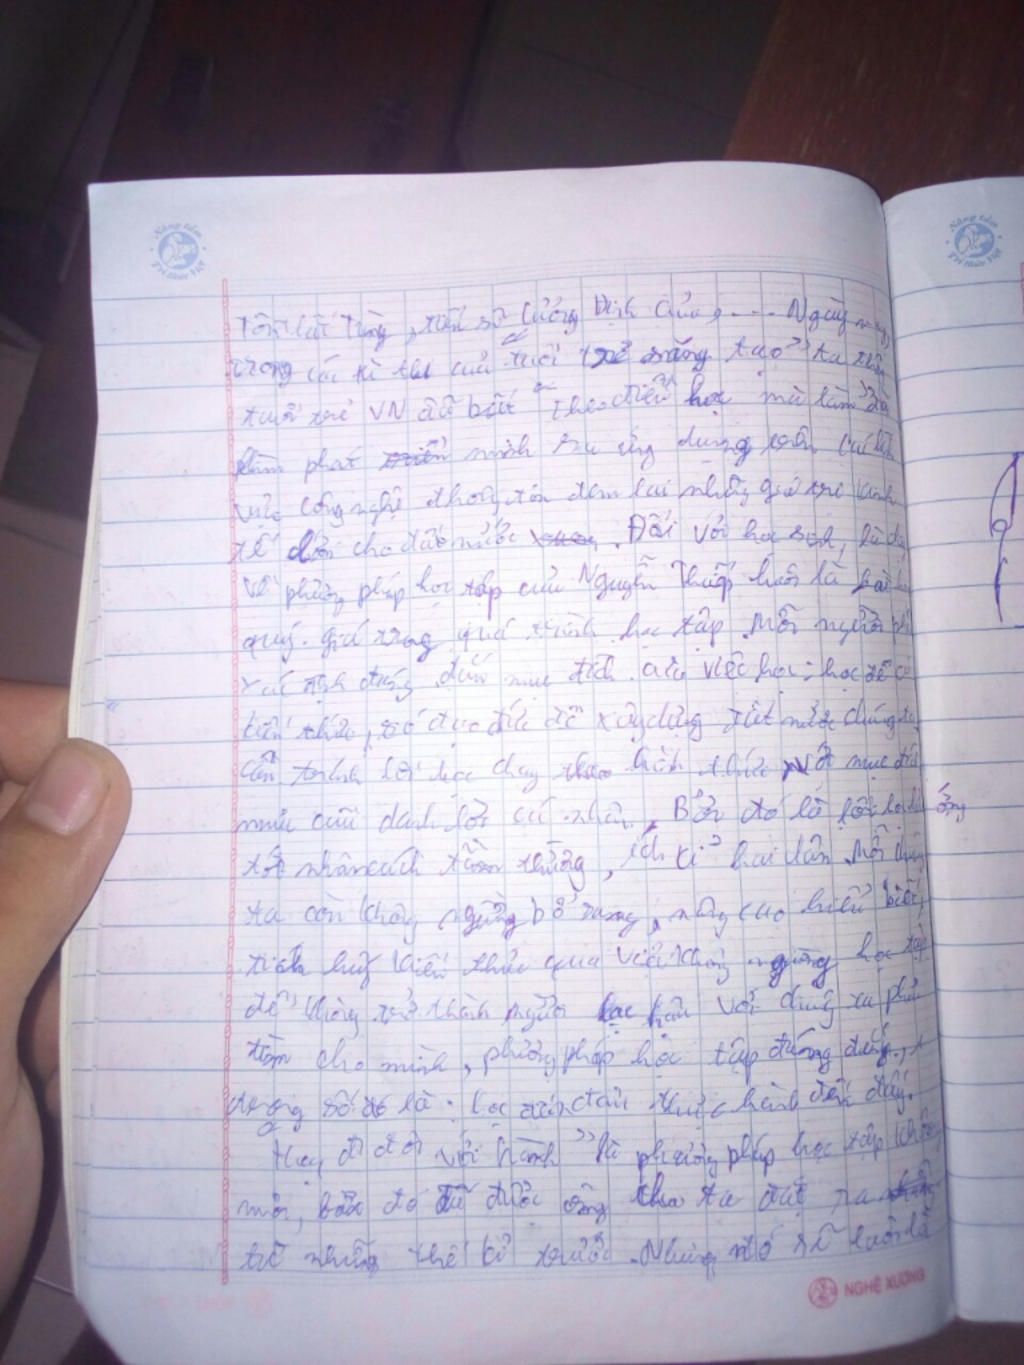 Nâng tầm
Trí thức Việt
Nâng tầm
Trí thức Việt
Tôn thất Tùng, tiến sĩ Lương Định Của, .... Ngày nay,
trong các kì thi của "tuổi trẻ sáng tạo" ta thấy
tuổi trẻ VN đã biết "Theo điều học mà làm"
phát minh ra ứng dụng
công nghệ thông tin đem lại những giá trị kinh
tế lớn cho đất nước. Đối với học sinh,
về phương pháp học tập của Nguyễn Thiếp luôn là bài học
quý giá trong quá trình học tập. Mỗi người phải
xác định đúng đắn mục đích của việc học: học để có
kiến thức, có đạo đức để xây dựng đất nước chúng ta
cần tránh lối học chạy theo hình thức với mục đích
mưu cầu danh lợi cá nhân. Bởi đó là lối học
nhân cách tầm thường, ích kỉ Mỗi chúng
ta còn không ngừng bổ sung, nâng cao hiểu biết,
tích luỹ kiến thức qua việc không ngừng học tập
để không trở thành người lạc hậu Và chúng ta phải
tìm cho mình, phương pháp học tập đúng đắn,
trong số đó là: học đến đâu thực hành đến đấy.
Học đi đôi với hành" là phương pháp học tập không
mới, bởi đó đã được ông cha ta đặt ra
từ những thế kỉ trước. Nhưng nó sẽ luôn là
ởng
NGHỆ XƯƠNG